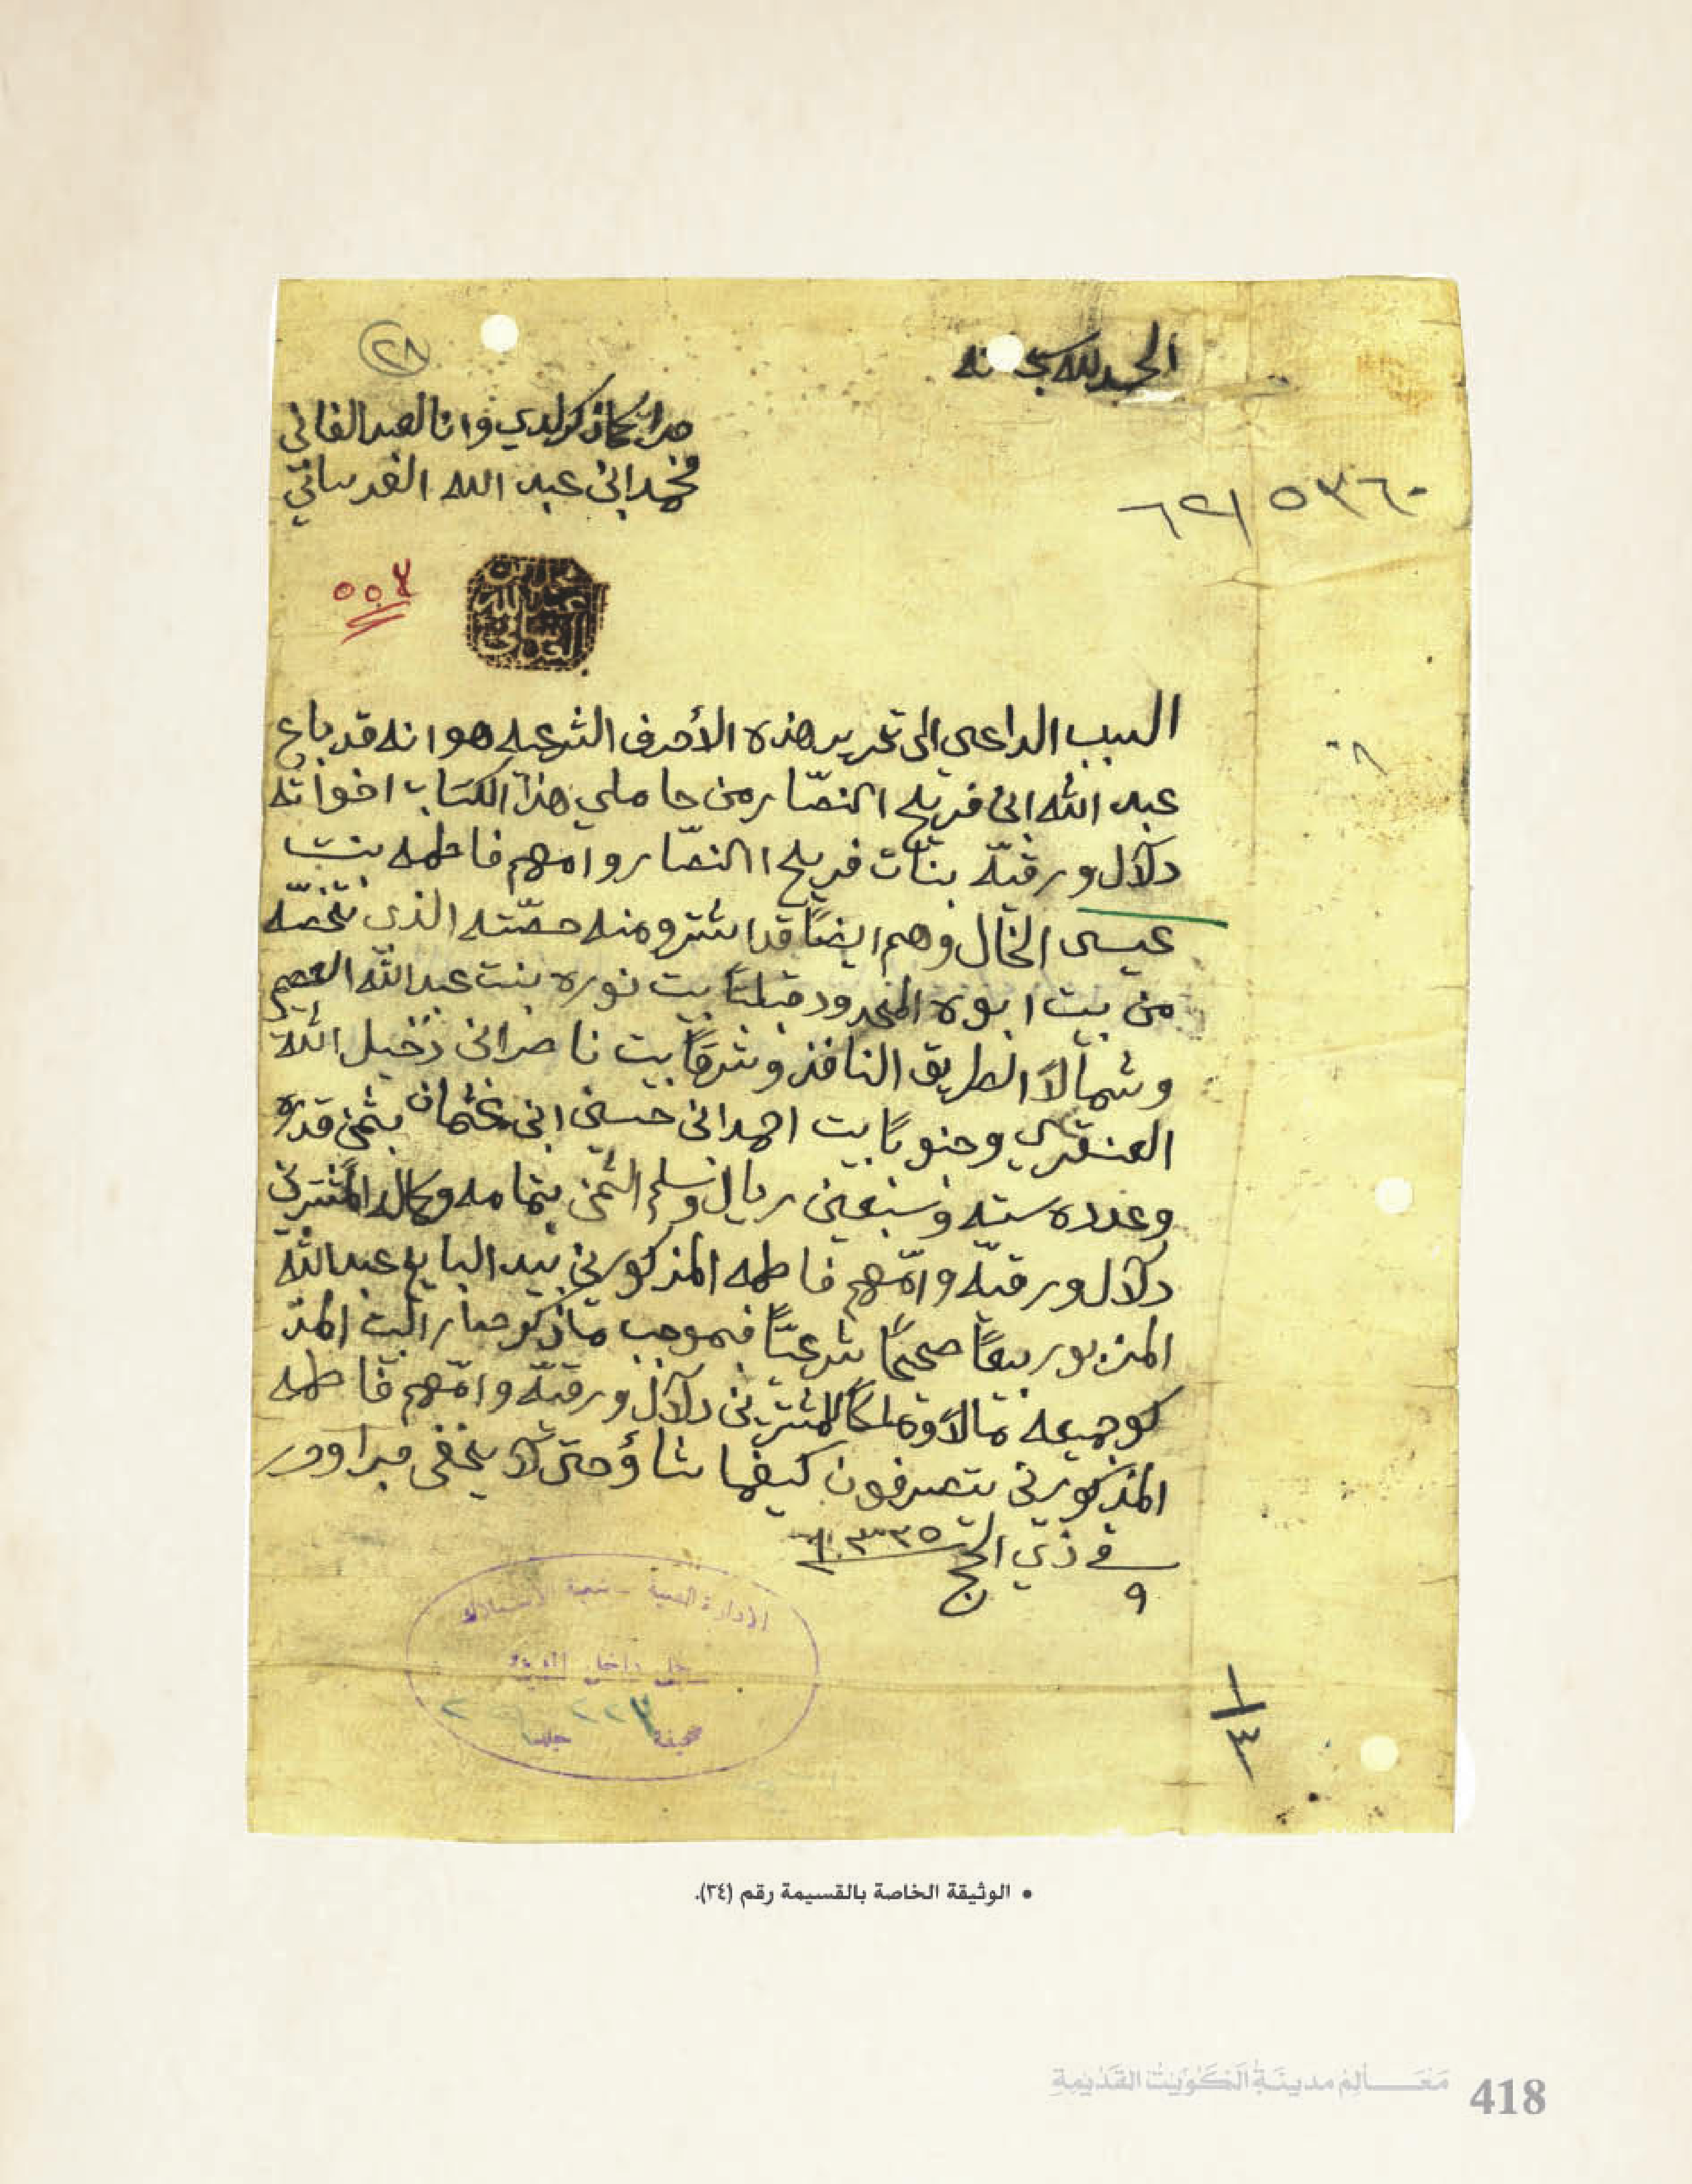 الحمد لله سبحانه
٢٨
جرا بما ذكر لدي وانا العبد الفاني
محمد ابن عبد الله العدساني
٥٣٦٠
٥٥٧
محمد بن
عبد الله
العدساني
السبب الداعي الى تحرير هذه الأحرف الشرعيه هو انه قد باع
عبد الله ابن فريح النصّار من حاملي هذا الكتاب اخواته
دلال ورقيّه بنات فريح النصّار وامهم فاطمه بنت
عيسى الخال وهم ايضاً قد اشترو منه حصّته الذي تخصّه
من بيت ابوه المحدود قبلتاً بيت نوره بنت عبد الله العصيمي
وشمالاً الطريق النافذ وشرقاً بيت ناصر ابن دخيل الله
العنقري وجنوباً بيت احمد ابن حسين ابن عثمان بثمن قدره
وعدده سته وسبعين ريال وسلم الثمن بتمامه وكماله المشترين
دلال ورقيّه وامّهم فاطمه المذكورين بيد البايع عبد الله
المزبور بيعاً صحيحاً شرعيّاً فبموجب ما ذكر صار البيت المذ
كور جميعه مالاً وملكاً للمشترين دلال ورقيّه وامّهم فاطمه
المذكورين يتصرفون كيفما شاؤ حتى لا يخفى جرا وحرر
في ٩ ذي الحج ١٣٣٥
الإدارة
سجل داخل
صحيفة ٢٢٣ جلد
١/٤
• الوثيقة الخاصة بالقسيمة رقم (٣٤).
مَعَـــالِمُ مدينَـةِ الكُوَيْتْ القَدْيمِةِ 418